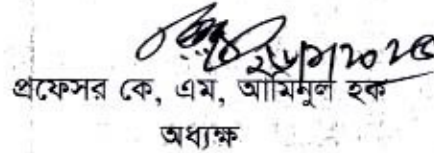 প্রফেসর কে, এম, আমিনুল হক
অধ্যক্ষ